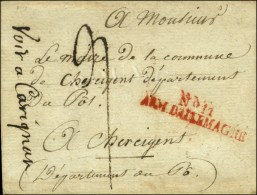 A Monsieur
Le maire de la commune
de Chercigent département
du Pô
A Chercigent
Département du Pô
Voir a Carignan
No 11
ARM. D'ALLEMAGNE